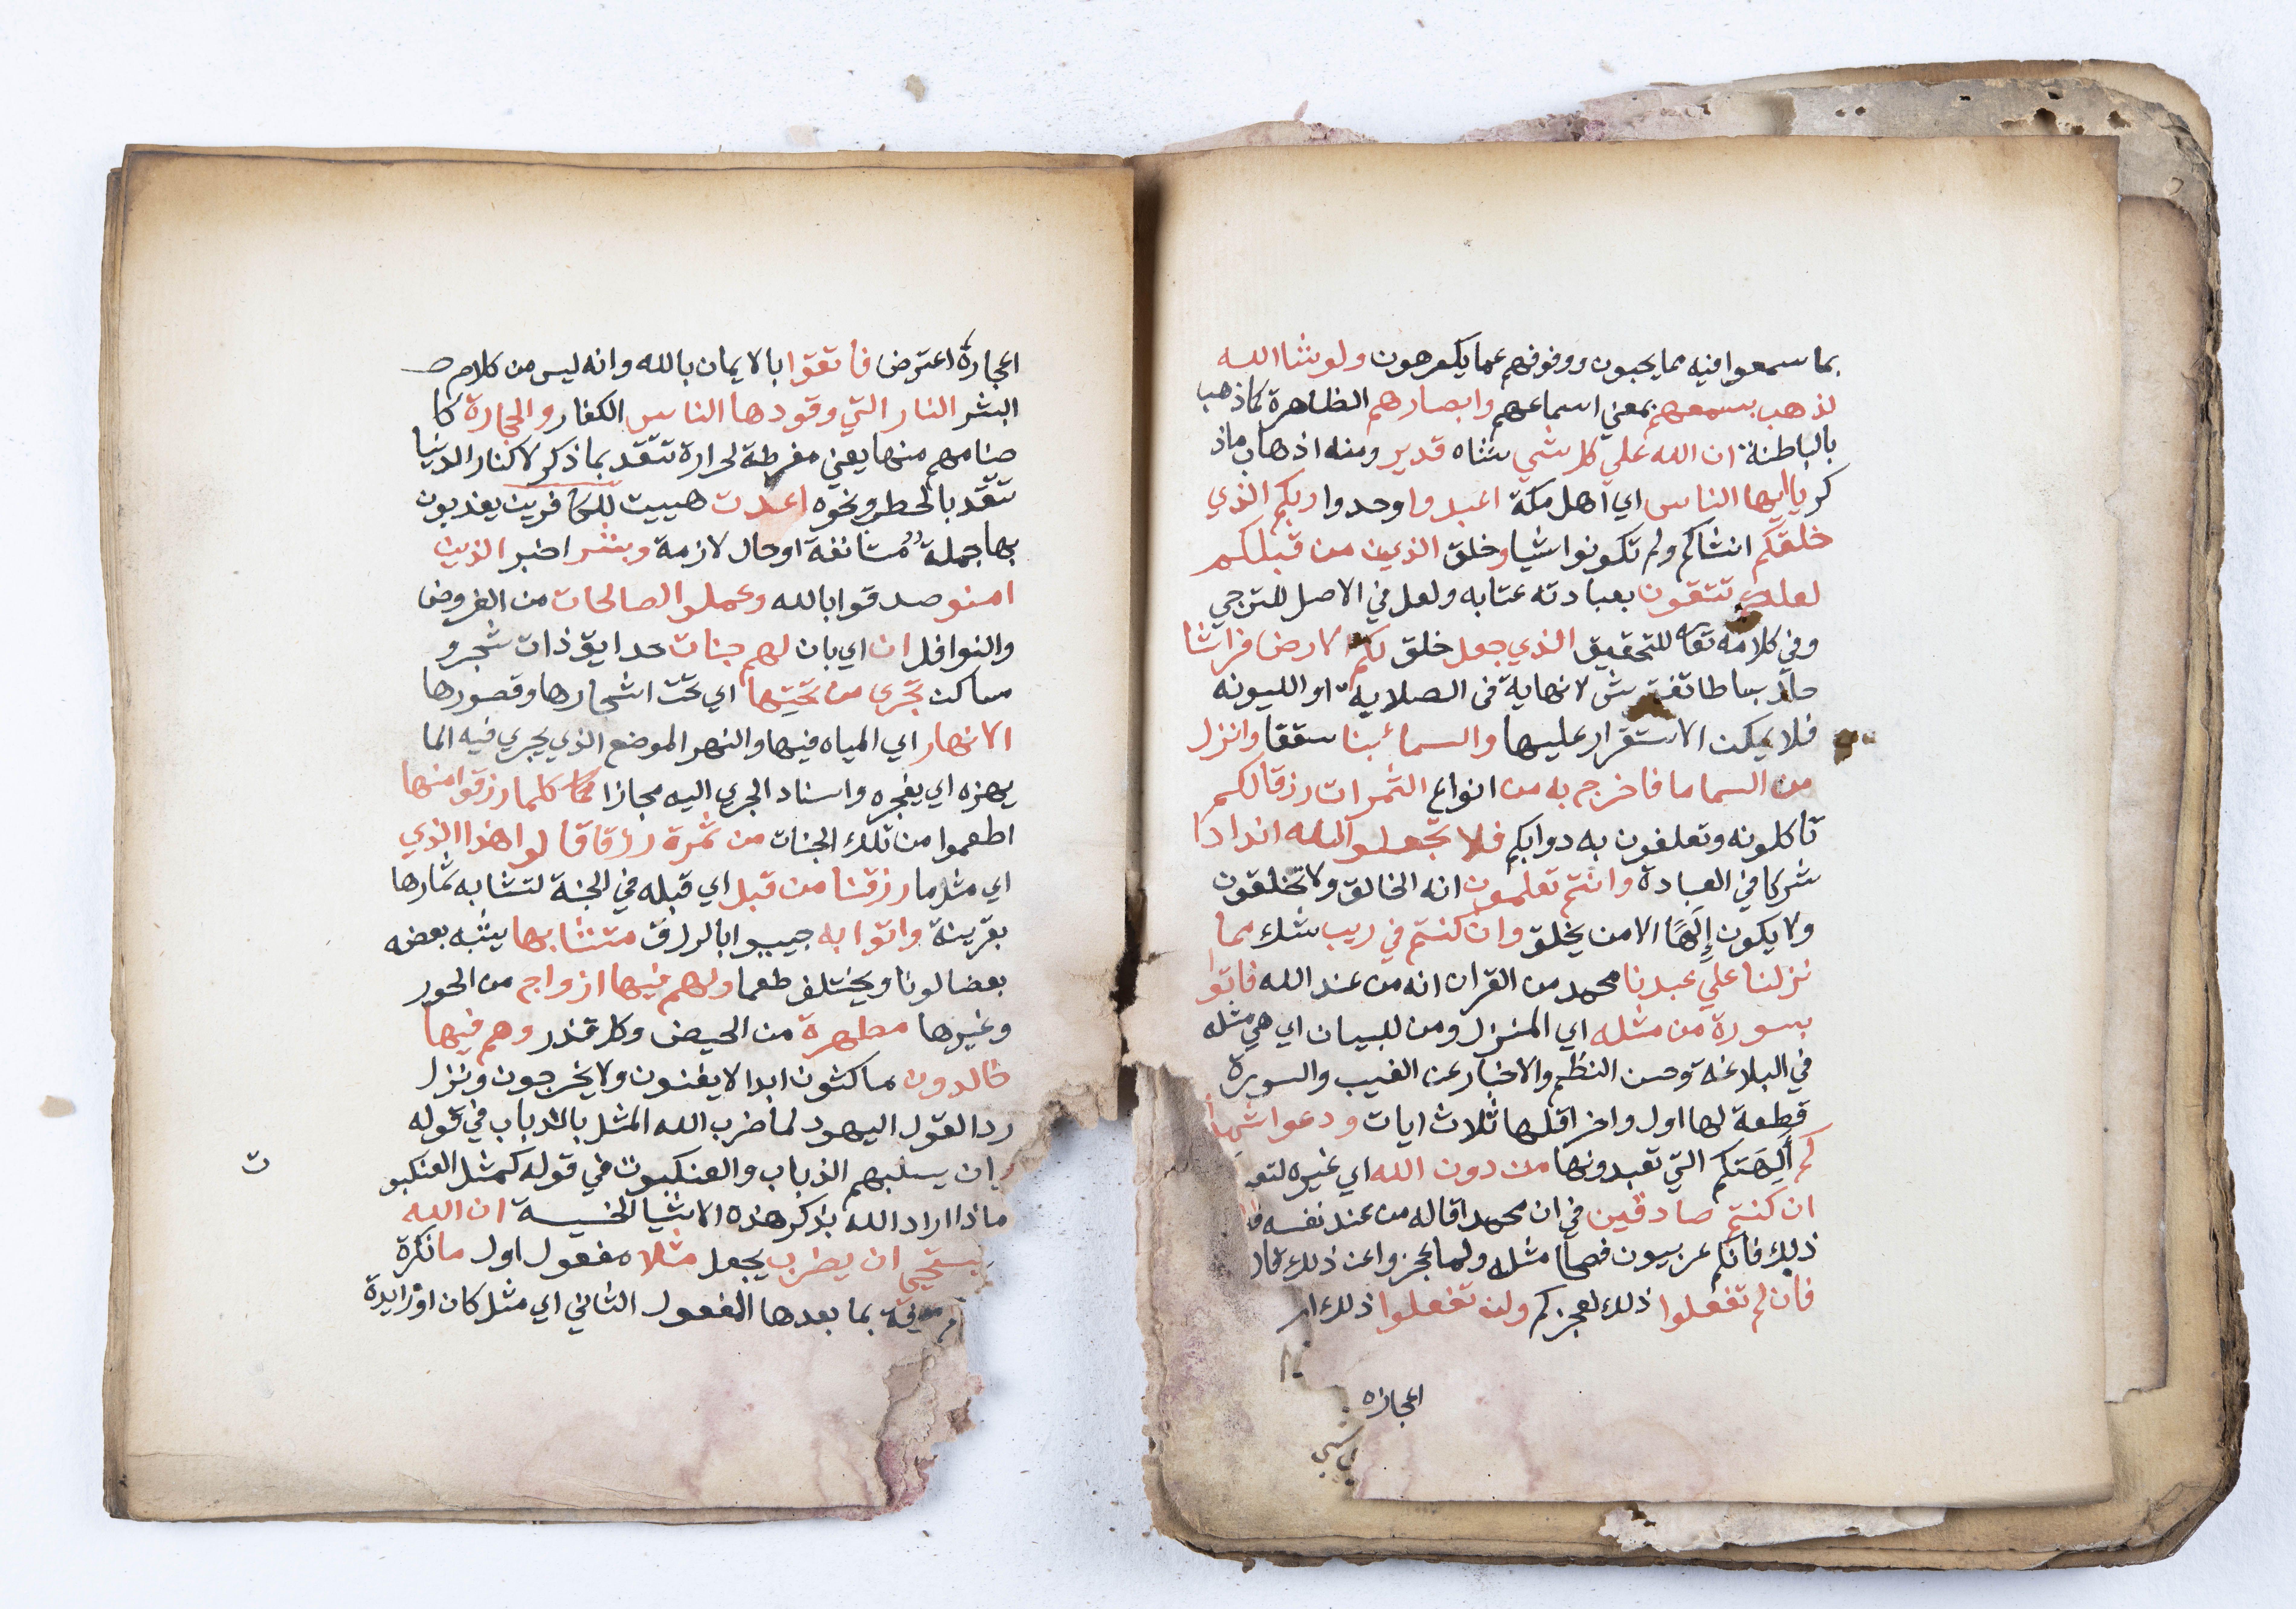 بما سمعوا فيه مما يحبون ووقوفهم عما يكرهون ولو شا الله
لذهب بسمعهم بمعني اسماعهم وابصارهم الظاهرة كما ذهب
بالباطنة ان الله علي كل شي شاه قدير ومنه اذهاب ماذ
كر يا ايها الناس اي اهل مكة اعبدوا وحدوا ربكم الذي
خلقكم انشاكم ولم تكونوا شيا وخلق الذين من قبلكم
لعلكم تتقون بعبادته عتابه ولعل في الاصل للترجي
وفي كلامه تعا للتحقيق الذي جعل خلق لكم لارض فراشا
حال بساطا تفترش لا نهاية في الصلاية او الليونه
فلا يمكن الاستقرار عليها والسماء بنا سقفا وانزل
من السما ما فاخرج به من انواع الثمرات رزقا لكم
تاكلونه وتعلفون به دوابكم فلا تجعلوا لله اندادا
شركا في العبادة وانتم تعلمون انه الخالق ولا تخلقون
ولا يكون إِلَهًا الا من يخلق وان كنتم في ريب شك مما
نزلنا علي عبدنا محمد من القران انه من عند الله فاتوا
بسورة من مثله اي المنزل ومن للبيان اي هي مثله
في البلاغه وحسن النظم والاخبار عن الغيب والسورة
قطعة لها اول واخر اقلها ثلاث ايات ودعوا شهدا
كم آلِهَتكم التي تعبدونها من دون الله اي غيره لتعـ
ان كنتم صادقين في ان محمدا قاله من عند نفسه فا
ذلك فانكم عربيون فصحا مثله ولما عجزوا عن ذلك قال
فان لم تفعلوا ذلك لعجزكم ولن تفعلوا ذلك ا
اعجازه
اعجازة اعترض فاتقوا بالايمان بالله وانه ليس من كلام
البشر النار التي وقودها الناس الكفار والحجارة كا
صنامهم منها يعني مفرطة لحرارة تتقد بما ذكر لا كنار الدنيا
تتقد بالحطر ونحوه اعدت هييت للكافرين يعذبون
بها جملة مستانفة او حال لازمة وبشر اخبر الذين
امنو صدقوا بالله وعملوا الصالحات من الفروض
والنوافل ان اي بان لهم جنات حدايق ذات شجر و
مساكن تجري من تحتها اي تحت اشجارها وقصورها
الانهار اي المياه فيها والنهر الموضع الذي يجري فيه الما
يهزه اي يفجره واسناد الجري اليه مجازا كلما رزقوا منها
اطعموا من تلك الجنات من ثمرة رزقا قالوا هذا الذي
اي مثل ما رزقنا من قبل اي قبله في الجنة لتشابه ثمارها
بقرينة واتوا به جييوا بالرزق متشابها يشبه بعضه
بعضا لونا ويختلف طعما ولهم فيها ازواج من الحور
وغيرها مطهرة من الحيض وكل قذر وهم فيها
خالدون ماكثون ابدا لا يفنون ولا يخرجون ونزل
ردا لقول اليهود لما ضرب الله المثل بالذباب في قوله
ان يسلبهم الذباب والعنكبوت في قوله كمثل العنكبو
ت
ماذا اراد الله بذكر هذه الاشيا الخسيسة ان الله
يستحيي ان يضرب يجعل مثلا مفعول اول ما نكرة
بما بعدها المفعول الثاني اي مثل كان او زايدة